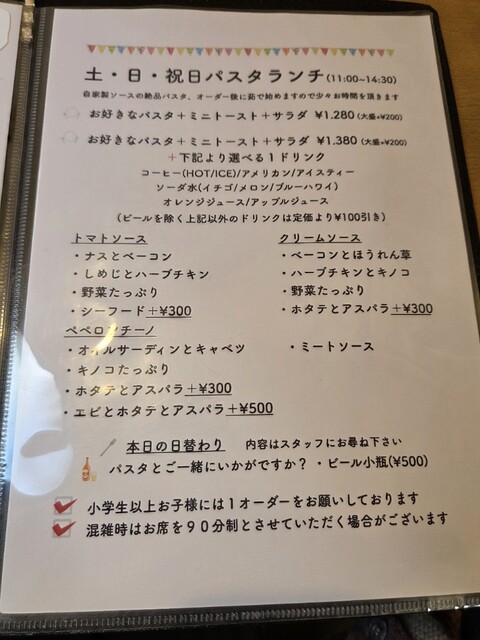 土・日・祝日パスタランチ(11:00~14:30)
自家製ソースの絶品パスタ、オーダー後に茹で始めますので少々お時間を頂きます
お好きなパスタ＋ミニトースト＋サラダ ¥1.280 (大盛+¥200)
お好きなパスタ＋ミニトースト＋サラダ ¥1.380 (大盛+¥200)
＋下記より選べる１ドリンク
コーヒー(HOT/ICE)/アメリカン/アイスティー
ソーダ水(イチゴ/メロン/ブルーハワイ)
オレンジジュース/アップルジュース
(ビールを除く上記以外のドリンクは定価より¥100引き)
トマトソース
・ナスとベーコン
・しめじとハーブチキン
・野菜たっぷり
・シーフード＋¥300
クリームソース
・ベーコンとほうれん草
・ハーブチキンとキノコ
・野菜たっぷり
・ホタテとアスパラ＋¥300
ペペロンチーノ
・オイルサーディンとキャベツ
・キノコたっぷり
・ホタテとアスパラ＋¥300
・エビとホタテとアスパラ＋¥500
・ミートソース
本日の日替わり 内容はスタッフにお尋ね下さい
パスタとご一緒にいかがですか？・ビール小瓶(¥500)
小学生以上お子様には１オーダーをお願いしております
混雑時はお席を９０分制とさせていただく場合がございます